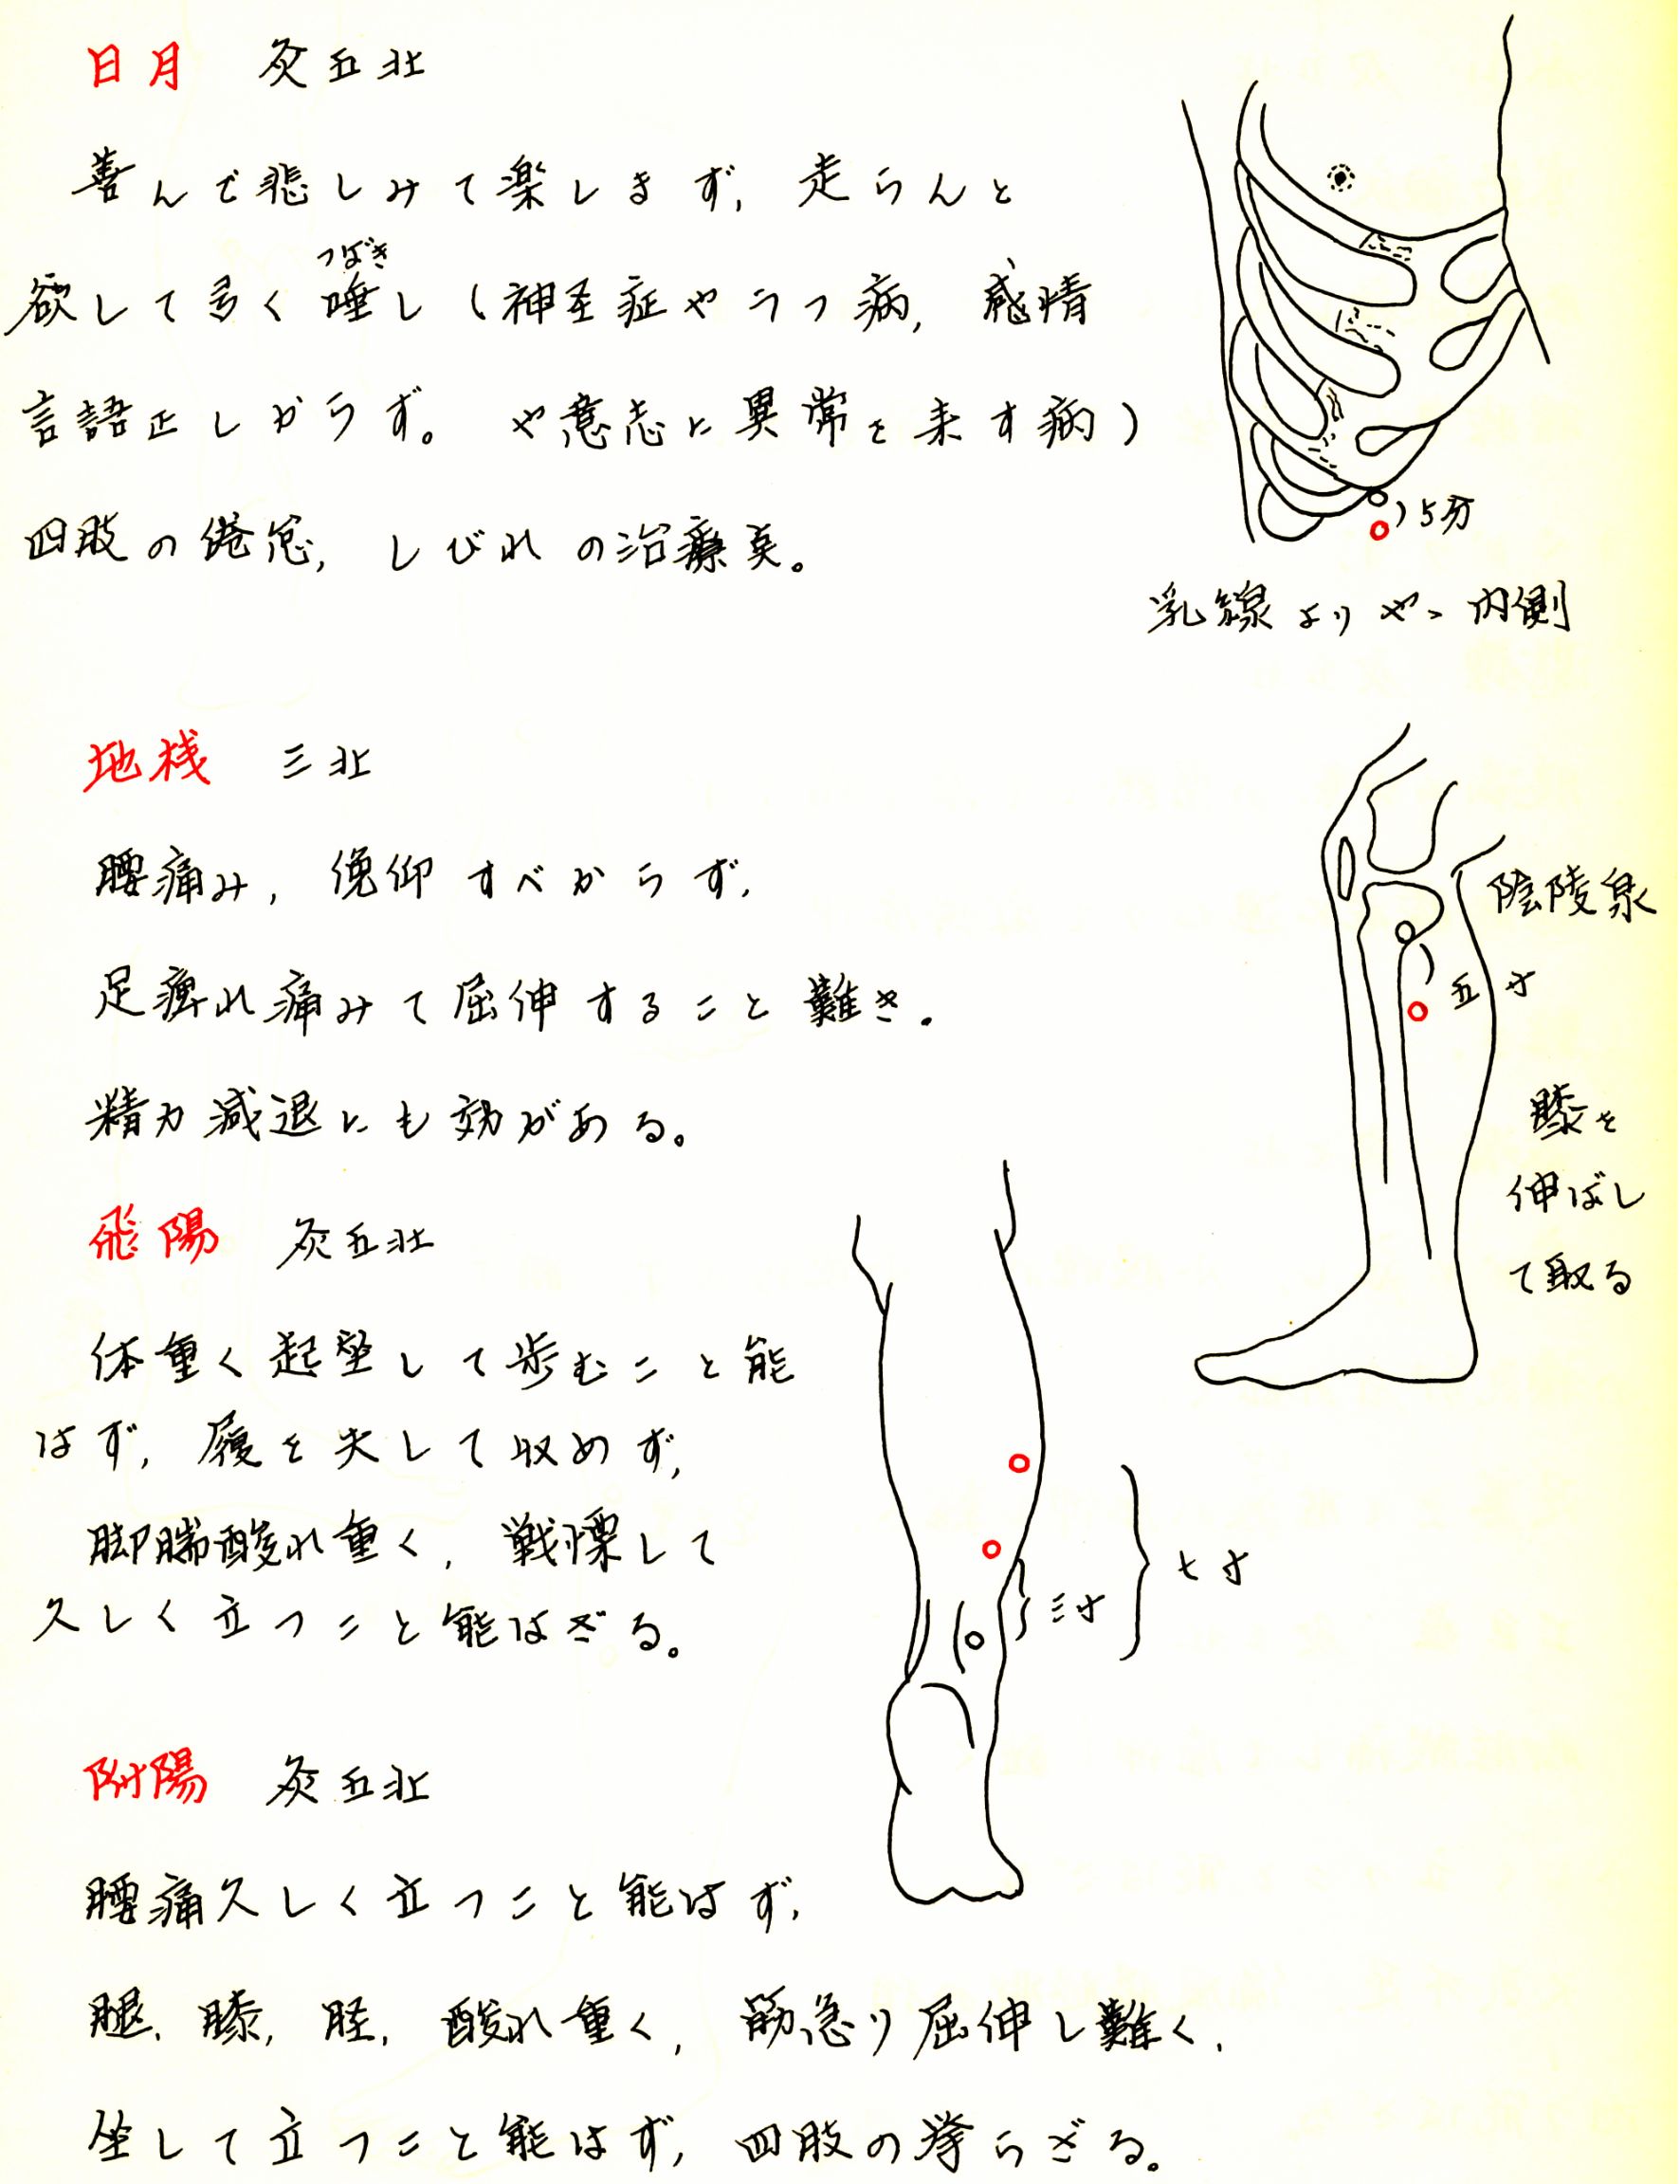 日月 灸五壮
善んで悲しみて楽しまず,走らんと
つばき
欲して多く唾し(神圣症やうつ病,感情
言語正しからず。や意志に異常を来す病)
四肢の倦怠,しびれの治療点。
5分
乳線よりやゝ内側
地機 三壮
腰痛み,俛仰すべからず,
足痺れ痛みて屈伸すること難き。
精力減退にも効がある。
陰陵泉
五寸
膝を
伸ばし
て取る
飛陽 灸五壮
体重く起坐して歩むこと能
はず,履を失して収めず,
脚腨酸れ重く,戦慄して
久しく立つこと能はざる。
三寸
七寸
附陽 灸五壮
腰痛久しく立つこと能はず,
腿,膝,胫,酸れ重く,筋急り屈伸し難く,
坐して立つこと能はず,四肢の挙らざる。